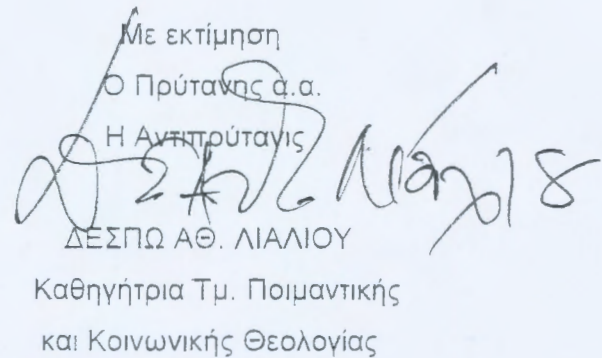 Με εκτίμηση
Ο Πρύτανης α.α.
Η Αντιπρύτανις
ΔΕΣΠΩ ΑΘ. ΛΙΑΛΙΟΥ
Καθηγήτρια Τμ. Ποιμαντικής
και Κοινωνικής Θεολογίας